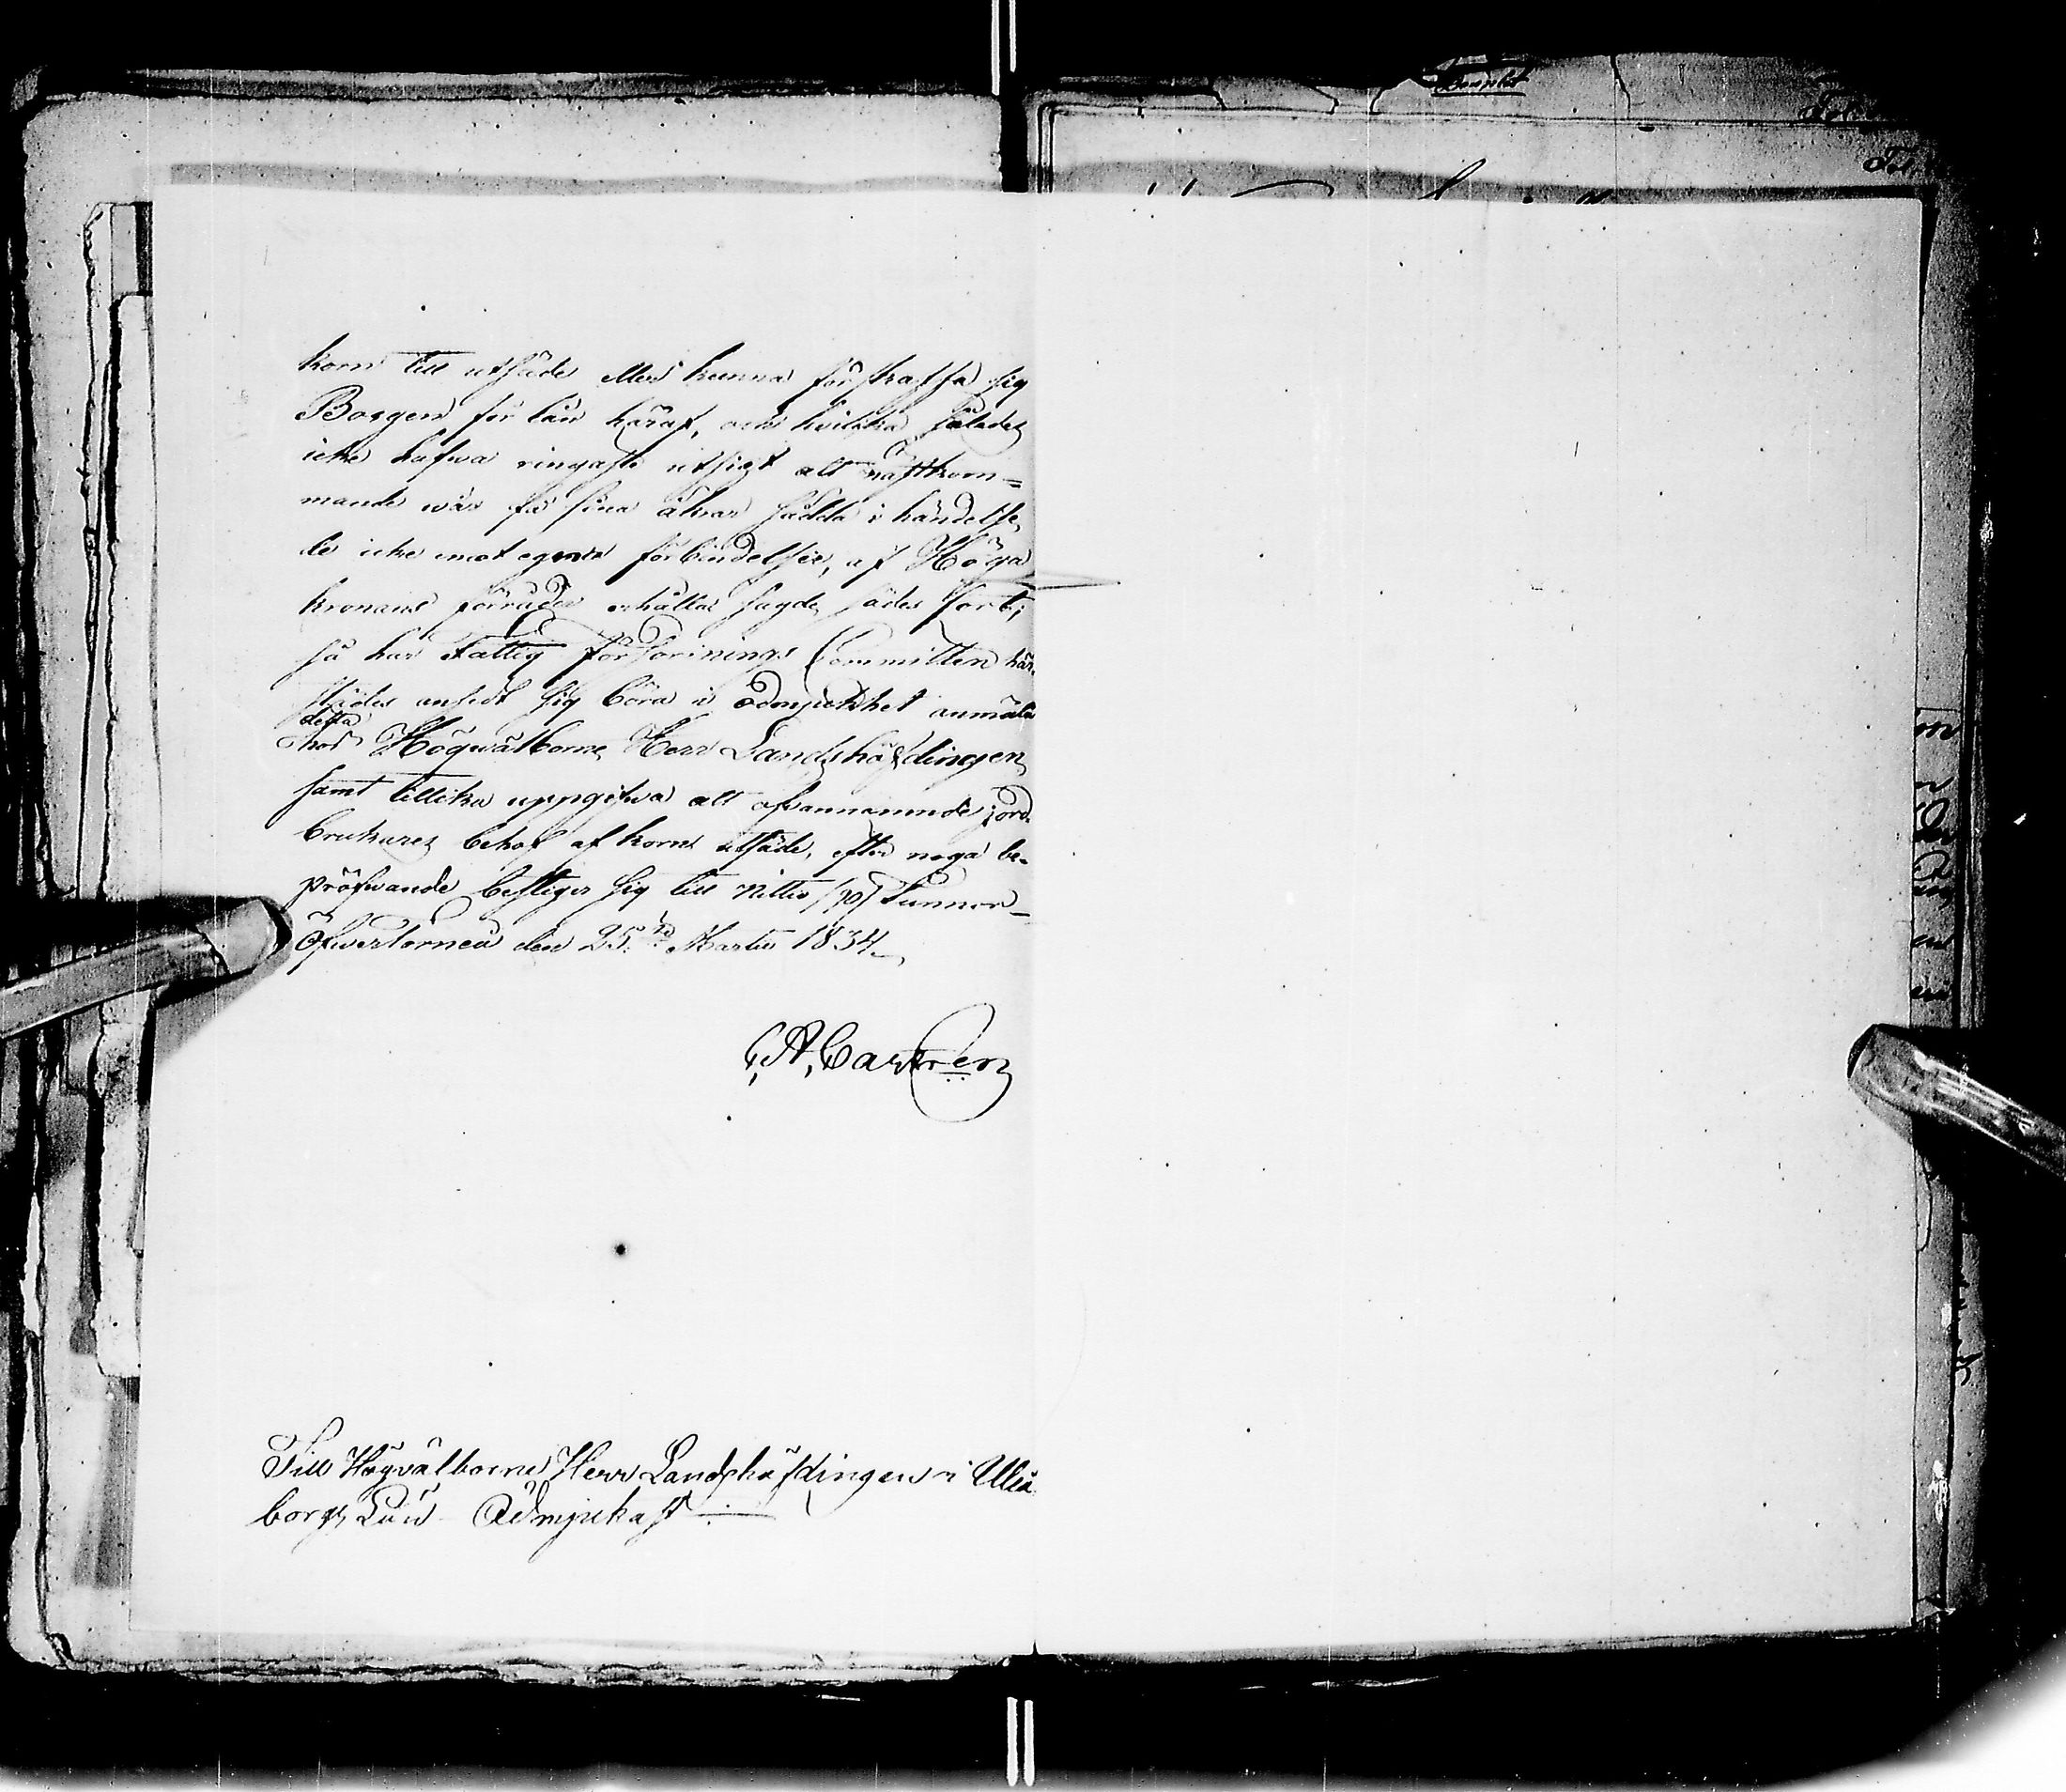 korn till utsäde eller kunna förskaffa sig
Borgen för lån häraf, och hvilka således
icke hafwa ringaste utsigt att nästkom-
mande wår få sina åkrar sådda i händelse
de icke emot egna förbindelser, af Höga
kronans förråder erhålla sagde sädes sort;
så har Fattig försörjnings Committen här-
städes ansedt sig böra i ödmjukhet anmäla
detta
hos Högwälborne Herr Landshöfdingen
samt tillika uppgifwa att ofwannämnde jord-
brukares behof af korn utsäde, efter noga be-
pröfwande bestiger sig till Nittio /90/ Tunnor_
Öfwertorneå den 25:te Martii 1834.
C. A. Castrén
Till Högvälborne Herr Landshöfdingen i Uleå
borgs Län Ödmjukast